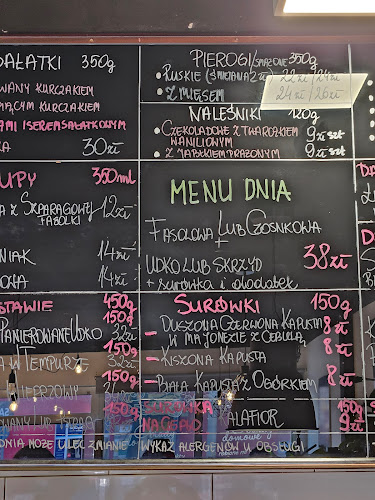 SAŁATKI 350g
WANY KURCZAKIEM
KURCZAKIEM
SEREM SAŁATKOWYM
30zł
PIEROGI/SMAŻONE 350g
• RUSKIE (ŚMIETANA 2zł) 22zł/24zł
• Z MIĘSEM 24zł/26zł
NALEŚNIKI 120g
• CZEKOLADOWE Z TWAROŻKIEM WANILIOWYM 9zł szt
• Z JABŁKIEM PRAŻONYM 9zł szt
UPY 350ml
A Z SZPARAGOWEJ FASOLKI 12zł
NIAK 14zł
OWA 14zł
MENU DNIA
FASOLOWA LUB CZOSNKOWA
+
UDKO LUB SKRZYD 38zł
+ surówka i dodatek
STAWIE 450g
150g
PANIEROWANE UDKO 32zł
150g
A W TEMPURZE 32zł
150g
150g
SURÓWKI 150g
– DUSZONA CZERWONA KAPUSTA 8zł
W MAJONEZIE Z CEBULĄ
– KISZONA KAPUSTA 8zł
– BIAŁA KAPUSTA Z OGÓRKIEM 8zł
SURÓWKA NA CIEPŁO
KALAFIOR 150g 9zł
DNIA MOŻE ULEC ZMIANIE WYKAZ ALERGENÓW U OBSŁUGI